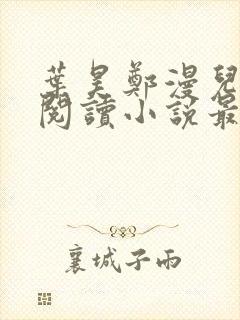 葉昊鄭漫兒
閱讀小說最
襄城子雨